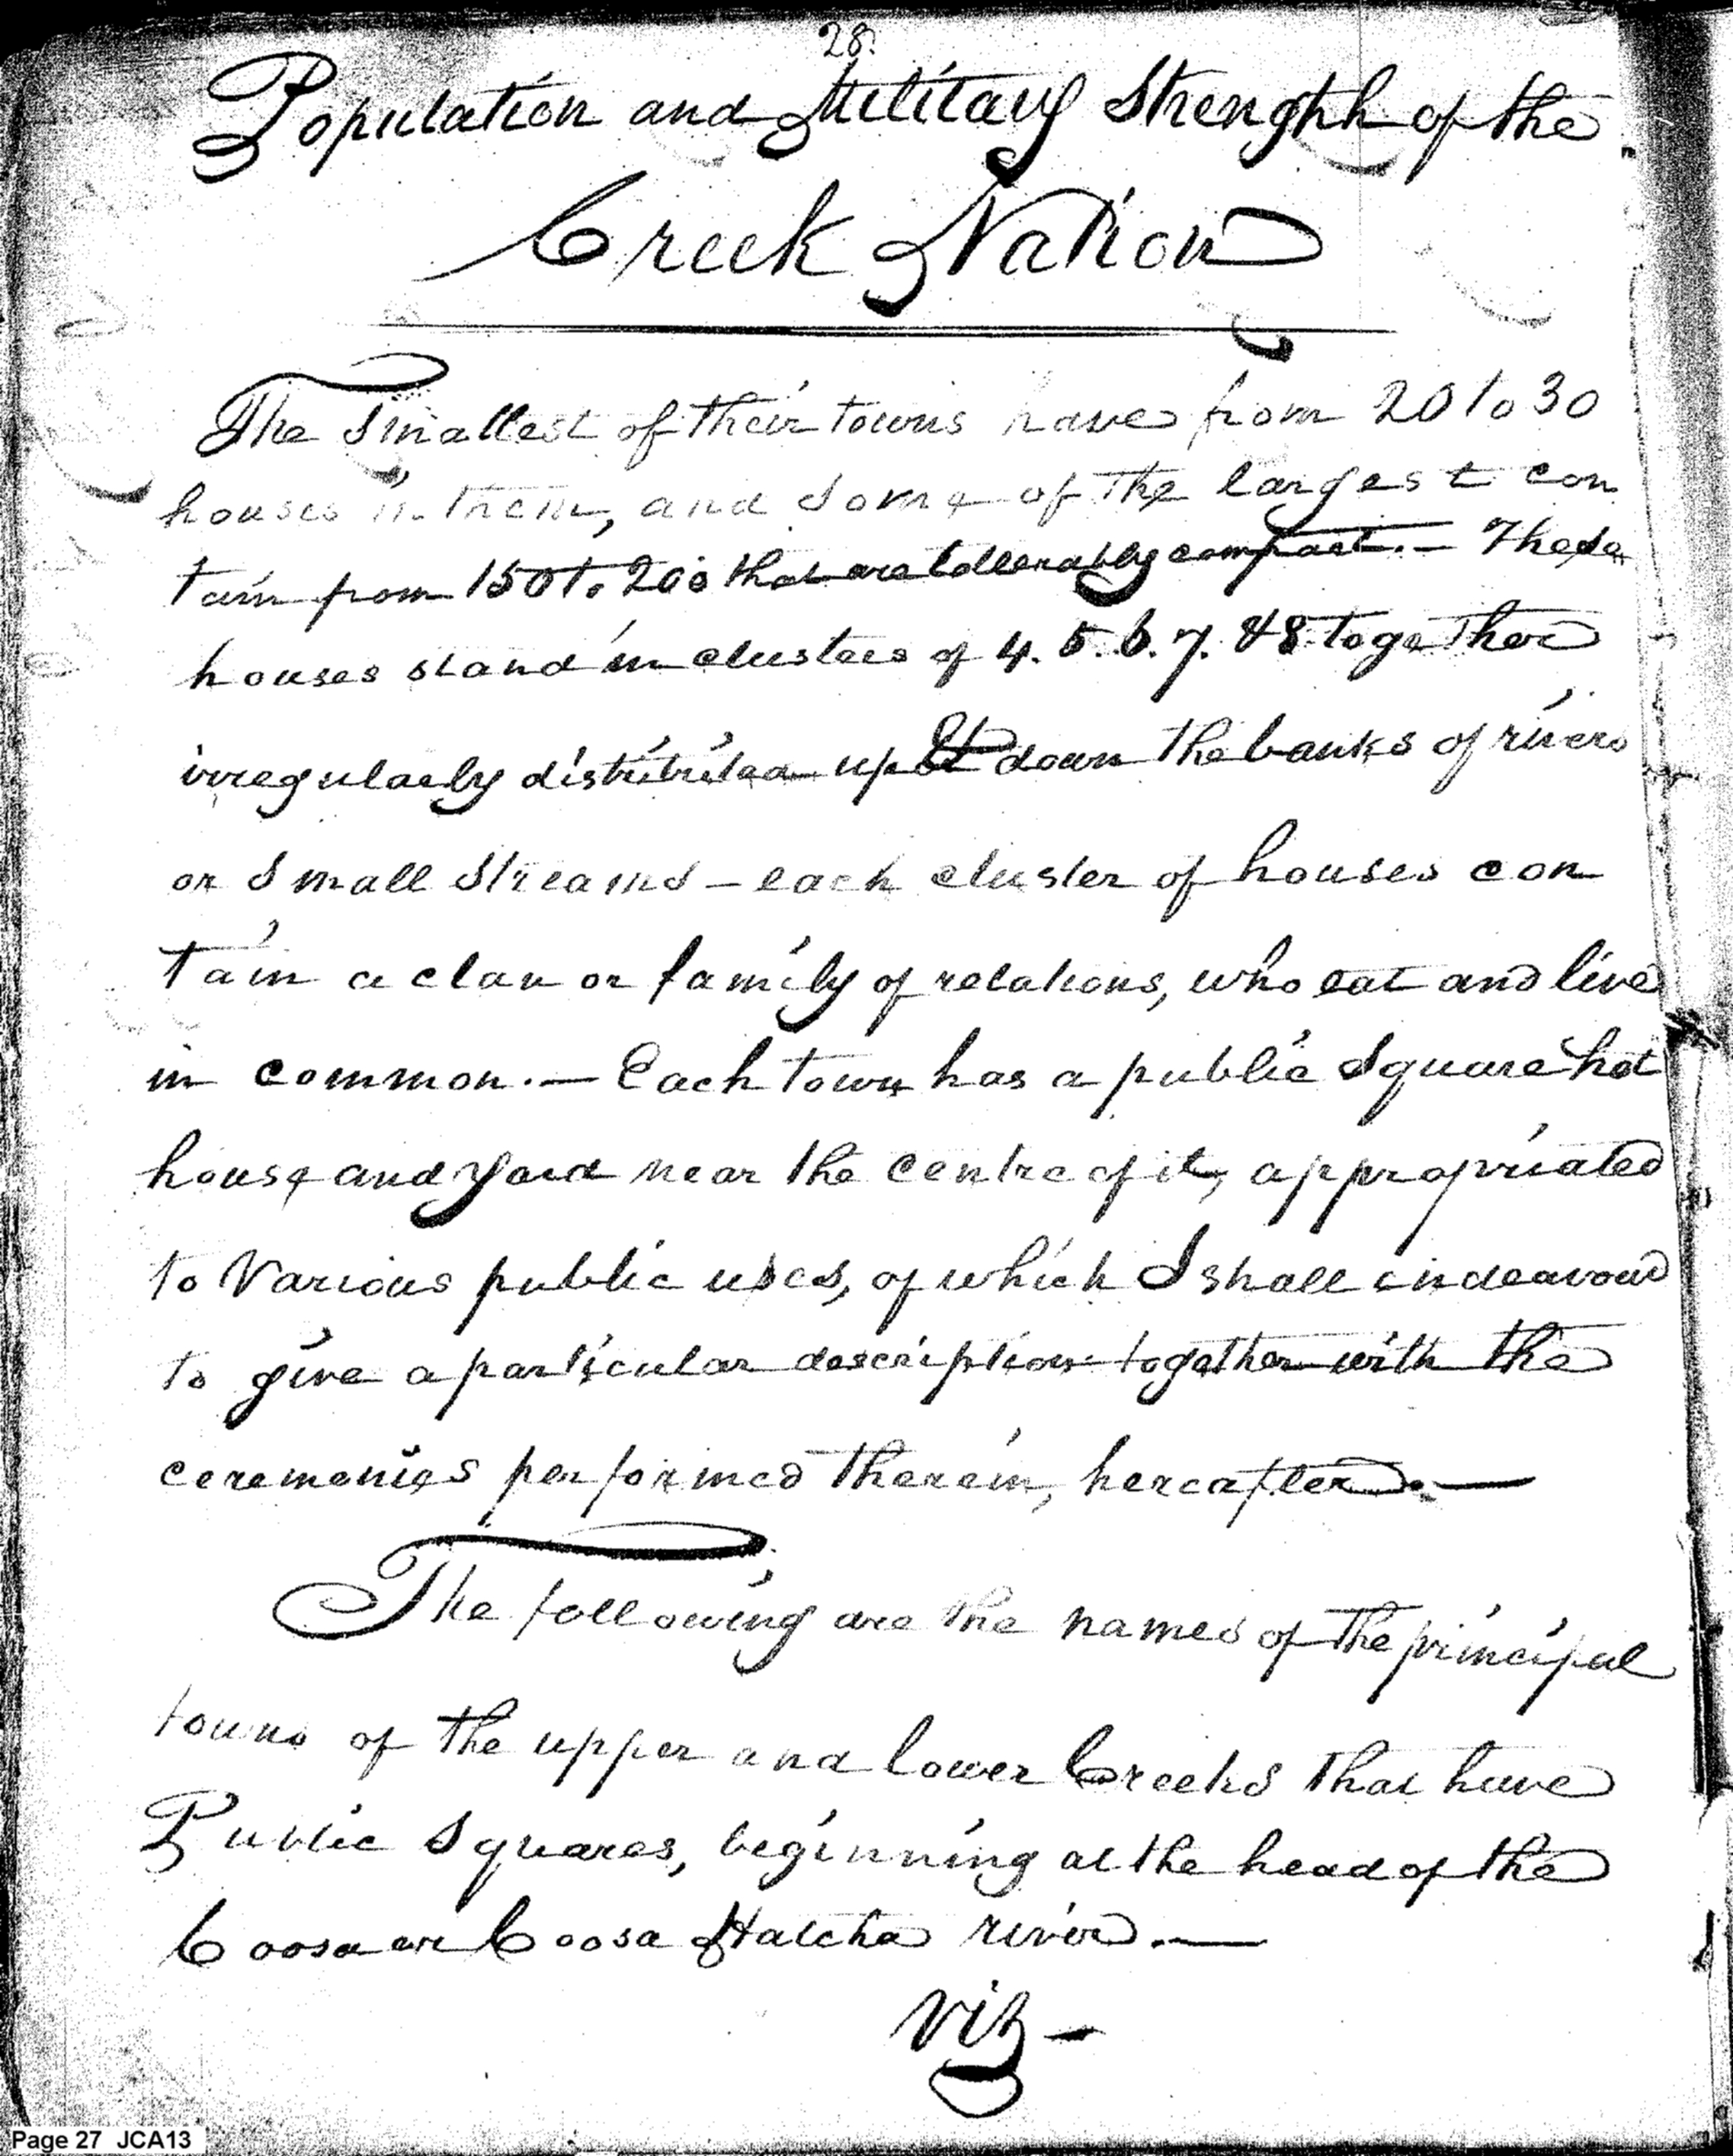 28.
Population and Military Strenghth of the
Creek Nation
The Smallest of their towns have from 20 to 30
houses in them, and Some of the largest con
tain from 150 to 200 that are tollerably compact. — These
houses stand in clusters of 4. 5. 6. 7. & 8 together
irregularly distributed up & down the banks of rivers
or Small Streams – each cluster of houses con
tain a clan or family of relations, who eat and live
in common. — Each town has a public Square hot
house and yard near the centre of it, appropriated
to Various public uses, of which I shall endeavour
to give a particular description together with the
ceremonies performed therein, hereafter. —
The following are the names of the principal
towns of the upper and lower Creeks that have
Public Squares, beginning at the head of the
Coosa or Coosa Hatcha river. —
Viz —
Page 27 JCA13